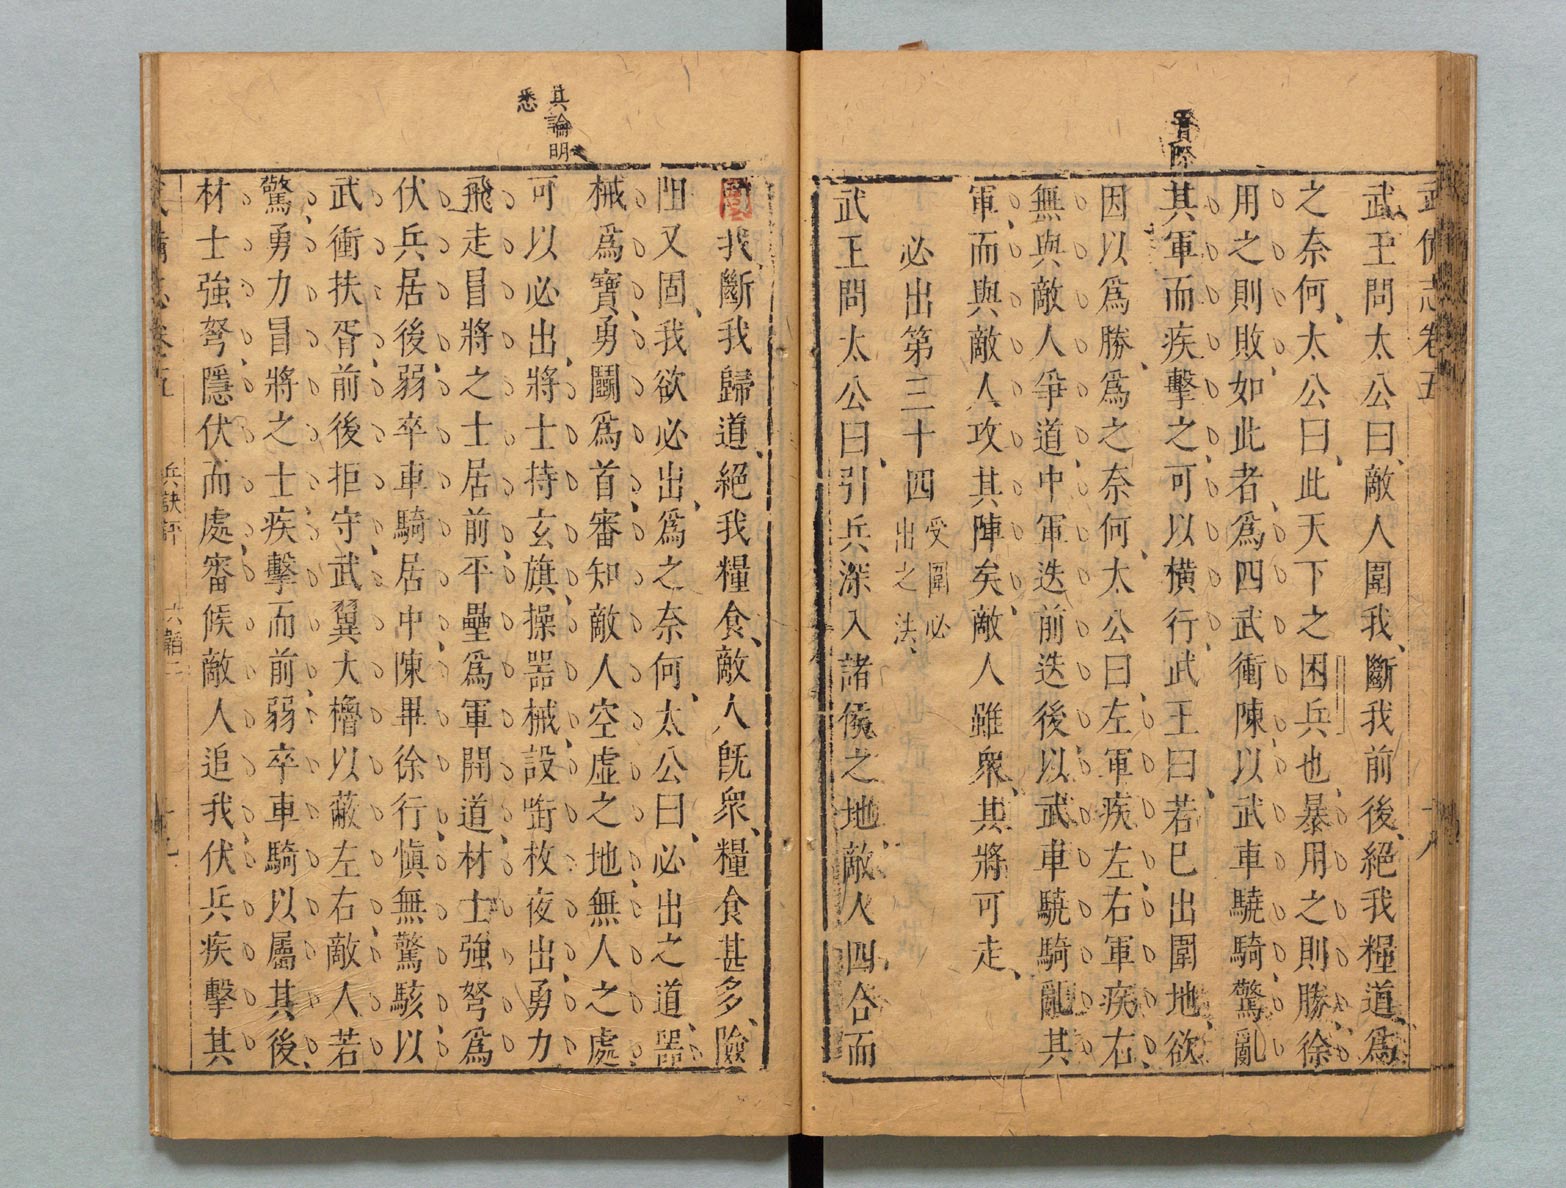 武備志卷五 十八
武王問太公曰敵人圍我斷我前後絕我糧道爲
之奈何太公曰此天下之困兵也暴用之則勝徐
用之則敗如此者爲四武衝陳以武車驍騎驚亂
其軍而疾擊之可以横行武王曰若已出圍地欲
因以爲勝爲之奈何太公曰左軍疾左右軍疾右
無與敵人爭道中軍迭前迭後以武車驍騎亂其
軍而與敵人攻其陣矣敵人雖衆其將可走
必出第三十四 受圍必
出之法
武王問太公曰引兵深入諸侯之地敵人四合而
圍我斷我歸道絕我糧食敵人旣衆糧食甚多險
阻又固我欲必出爲之奈何太公曰必出之道器
械爲寶勇鬭爲首審知敵人空虛之地無人之處
其論明
悉
可以必出將士持玄旗操器械設銜枚夜出勇力
飛走冒將之士居前平壘爲軍開道材士強弩爲
伏兵居後弱卒車騎居中陳畢徐行愼無驚駭以
武衝扶胥前後拒守武翼大櫓以蔽左右敵人若
驚勇力冒將之士疾擊而前弱卒車騎以屬其後
材士強弩隱伏而處審候敵人追我伏兵疾擊其
武備志卷五 兵訣評 六韜二 十九